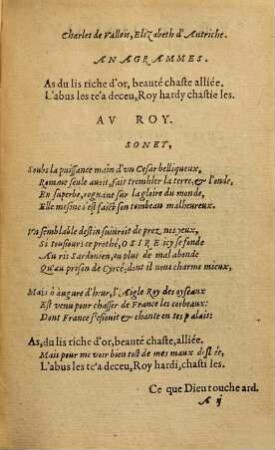 Charles de Vallois, Elizabeth d'Autriche.
ANAGRAMMES.
As du lis riche d'or, beauté chaste alliée.
L'abus les te'a deceu, Roy hardy chastie les.
AV ROY.
SONET,
Soubs la puissance main d'vn Cesar belliqueux,
Romme seule auoit, fait trembler la terre, & l'onde,
En superbe, regnant sur la gloire du monde,
Elle mesme s'est faict son tombeau malheureux.
Va semblable destin suiuroit de prez, nos yeux,
Si tousiours ce prothé, OSIRE icy se fonde
Au ris Sardonien, ou plus de mal abonde
Qu'au prison de Cyrcé, dont il nous charme mieux,
Mais ô augure d'heur, l'Aigle Roy des oyseaux
Est venu pour chasser de France les corbeaux:
Dont France s'esiouit & chante en tes palais:
As, du lis riche d'or, beauté chaste, alliée.
Mais pour me voir bien tost de mes maux
L'abus les te'a deceu, Roy hardi, chasti les.
Ce que Dieu touche ard.
A ij